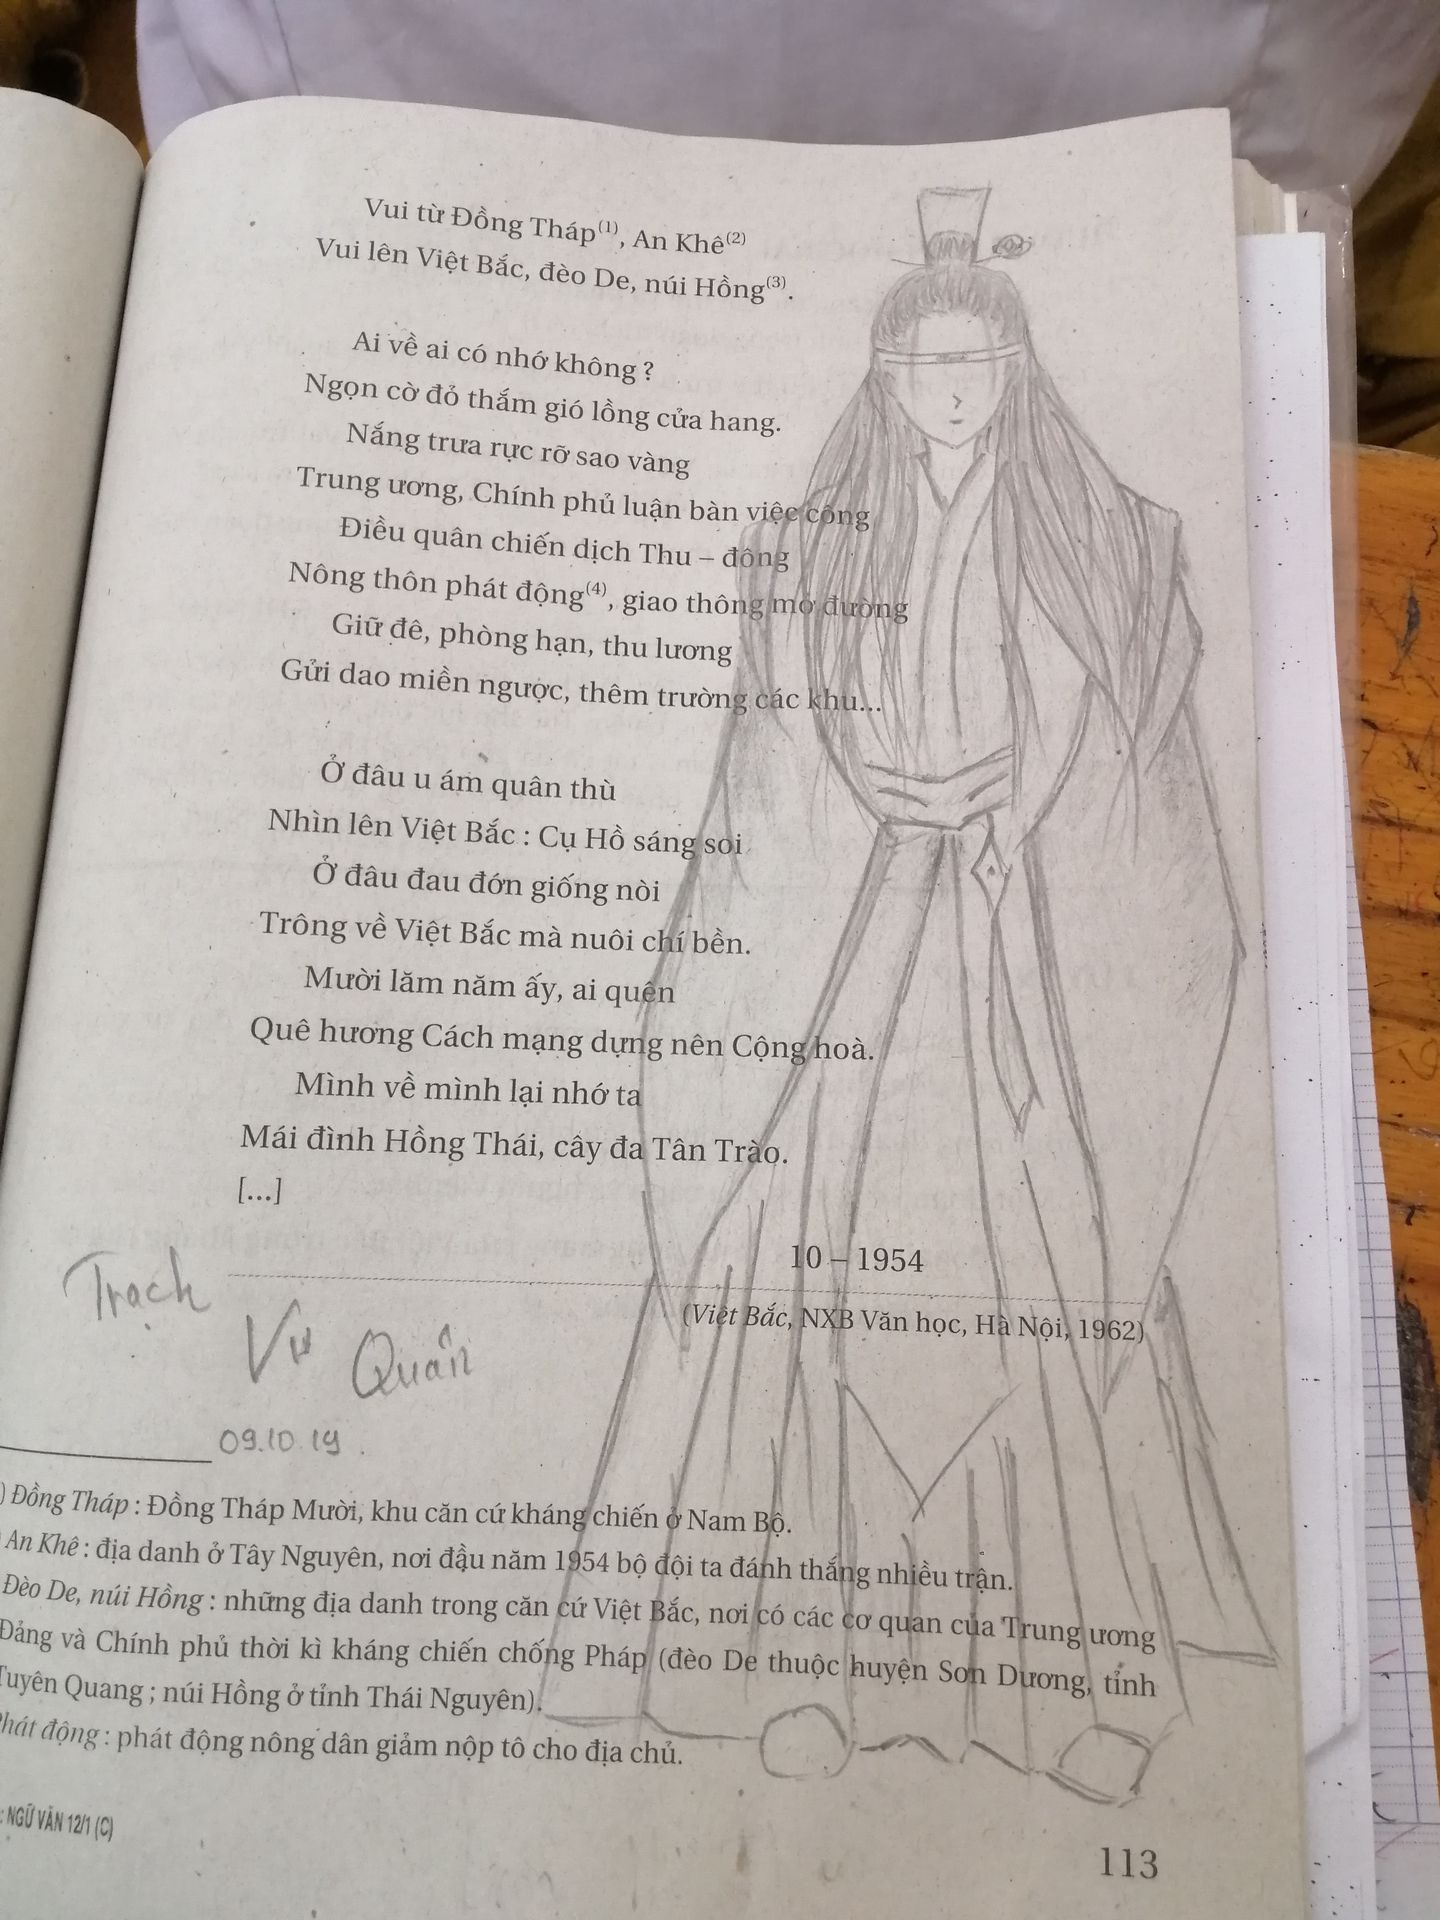 Vui từ Đồng Tháp(1), An Khê(2)
Vui lên Việt Bắc, đèo De, núi Hồng(3).
Ai về ai có nhớ không ?
Ngọn cờ đỏ thắm gió lồng cửa hang.
Nắng trưa rực rỡ sao vàng
Trung ương, Chính phủ luận bàn việc công
Điều quân chiến dịch Thu – đông
Nông thôn phát động(4), giao thông mở đường
Giữ đê, phòng hạn, thu lương
Gửi dao miền ngược, thêm trường các khu...
Ở đâu u ám quân thù
Nhìn lên Việt Bắc : Cụ Hồ sáng soi
Ở đâu đau đớn giống nòi
Trông về Việt Bắc mà nuôi chí bền.
Mười lăm năm ấy, ai quên
Quê hương Cách mạng dựng nên Cộng hoà.
Mình về mình lại nhớ ta
Mái đình Hồng Thái, cây đa Tân Trào.
[...]
10 – 1954
(Việt Bắc, NXB Văn học, Hà Nội, 1962)
Trạch
Vu
Quân
09.10.19.
) Đồng Tháp : Đồng Tháp Mười, khu căn cứ kháng chiến ở Nam Bộ.
An Khê : địa danh ở Tây Nguyên, nơi đầu năm 1954 bộ đội ta đánh thắng nhiều trận.
Đèo De, núi Hồng : những địa danh trong căn cứ Việt Bắc, nơi có các cơ quan của Trung ương
Đảng và Chính phủ thời kì kháng chiến chống Pháp (đèo De thuộc huyện Sơn Dương, tỉnh
Tuyên Quang ; núi Hồng ở tỉnh Thái Nguyên).
Phát động : phát động nông dân giảm nộp tô cho địa chủ.
: NGỮ VĂN 12/1 (C)
113